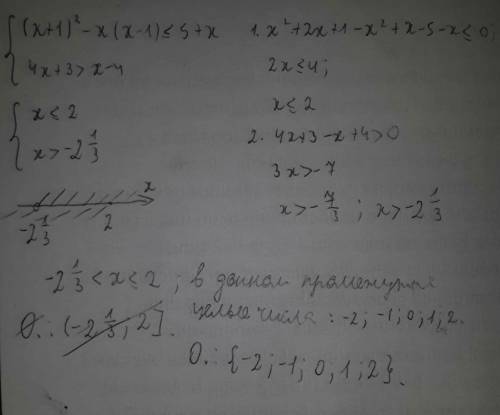 { (x+1)² - x(x-1) ≤ 5+x
4x+3 > x-4
{ x ≤ 2
x > -2 1/3
x
-2 1/3 2
1. x²+2x+1-x²+x-5-x ≤ 0;
2x ≤ 4;
x ≤ 2
2. 4x+3-x+4>0
3x>-7
x>-7/3 ; x>-2 1/3
-2 1/3 < x ≤ 2 ; в данном промежутке
целые числа : -2; -1; 0; 1; 2.
О.: (-2 1/3; 2].
О.: {-2; -1; 0; 1; 2}.